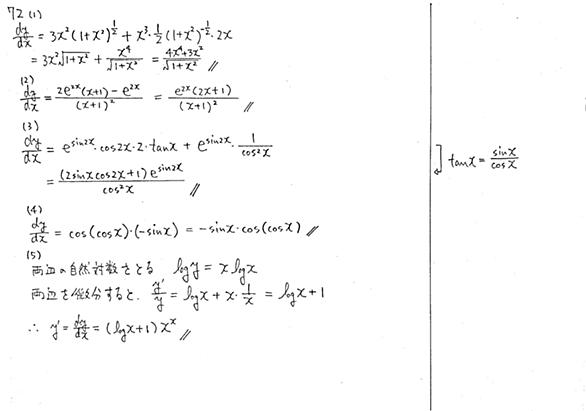 72 (1)
dy/dx = 3x²(1+x²)^(1/2) + x³·1/2(1+x²)^(-1/2)·2x
= 3x²√(1+x²) + x⁴/√(1+x²) = (4x⁴+3x²)/√(1+x²) //
(2)
dy/dx = (2e^(2x)(x+1) − e^(2x))/(x+1)² = e^(2x)(2x+1)/(x+1)² //
(3)
dy/dx = e^(sin2x)·cos2x·2·tanx + e^(sin2x)·1/cos²x
= (2sinxcos2x+1)e^(sin2x)/cos²x //
tanx = sinx/cosx
(4)
dy/dx = cos(cosx)·(−sinx) = −sinx·cos(cosx) //
(5)
両辺の自然対数をとる logy = xlogx
両辺を微分すると、 y'/y = logx + x·1/x = logx+1
∴ y' = dy/dx = (logx+1)x^x //